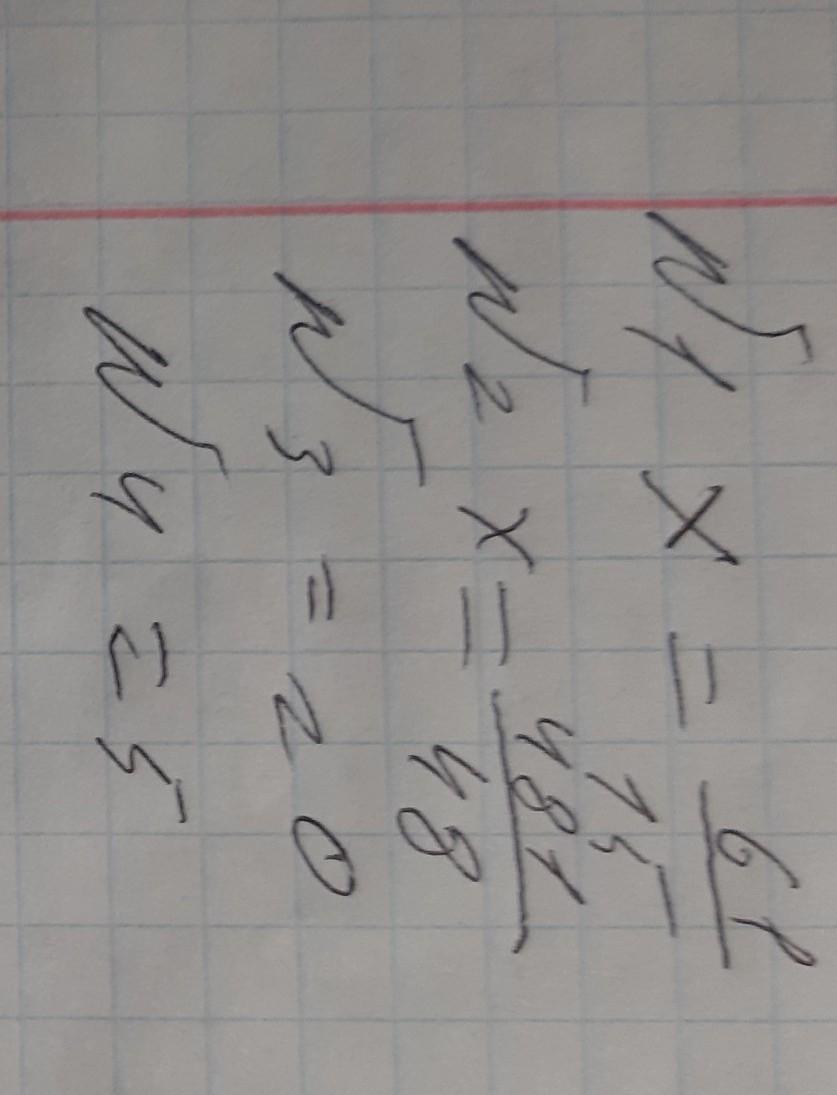 №1 x = 61/15
№2 x = 481/48
№3 = 20
№4 = 5